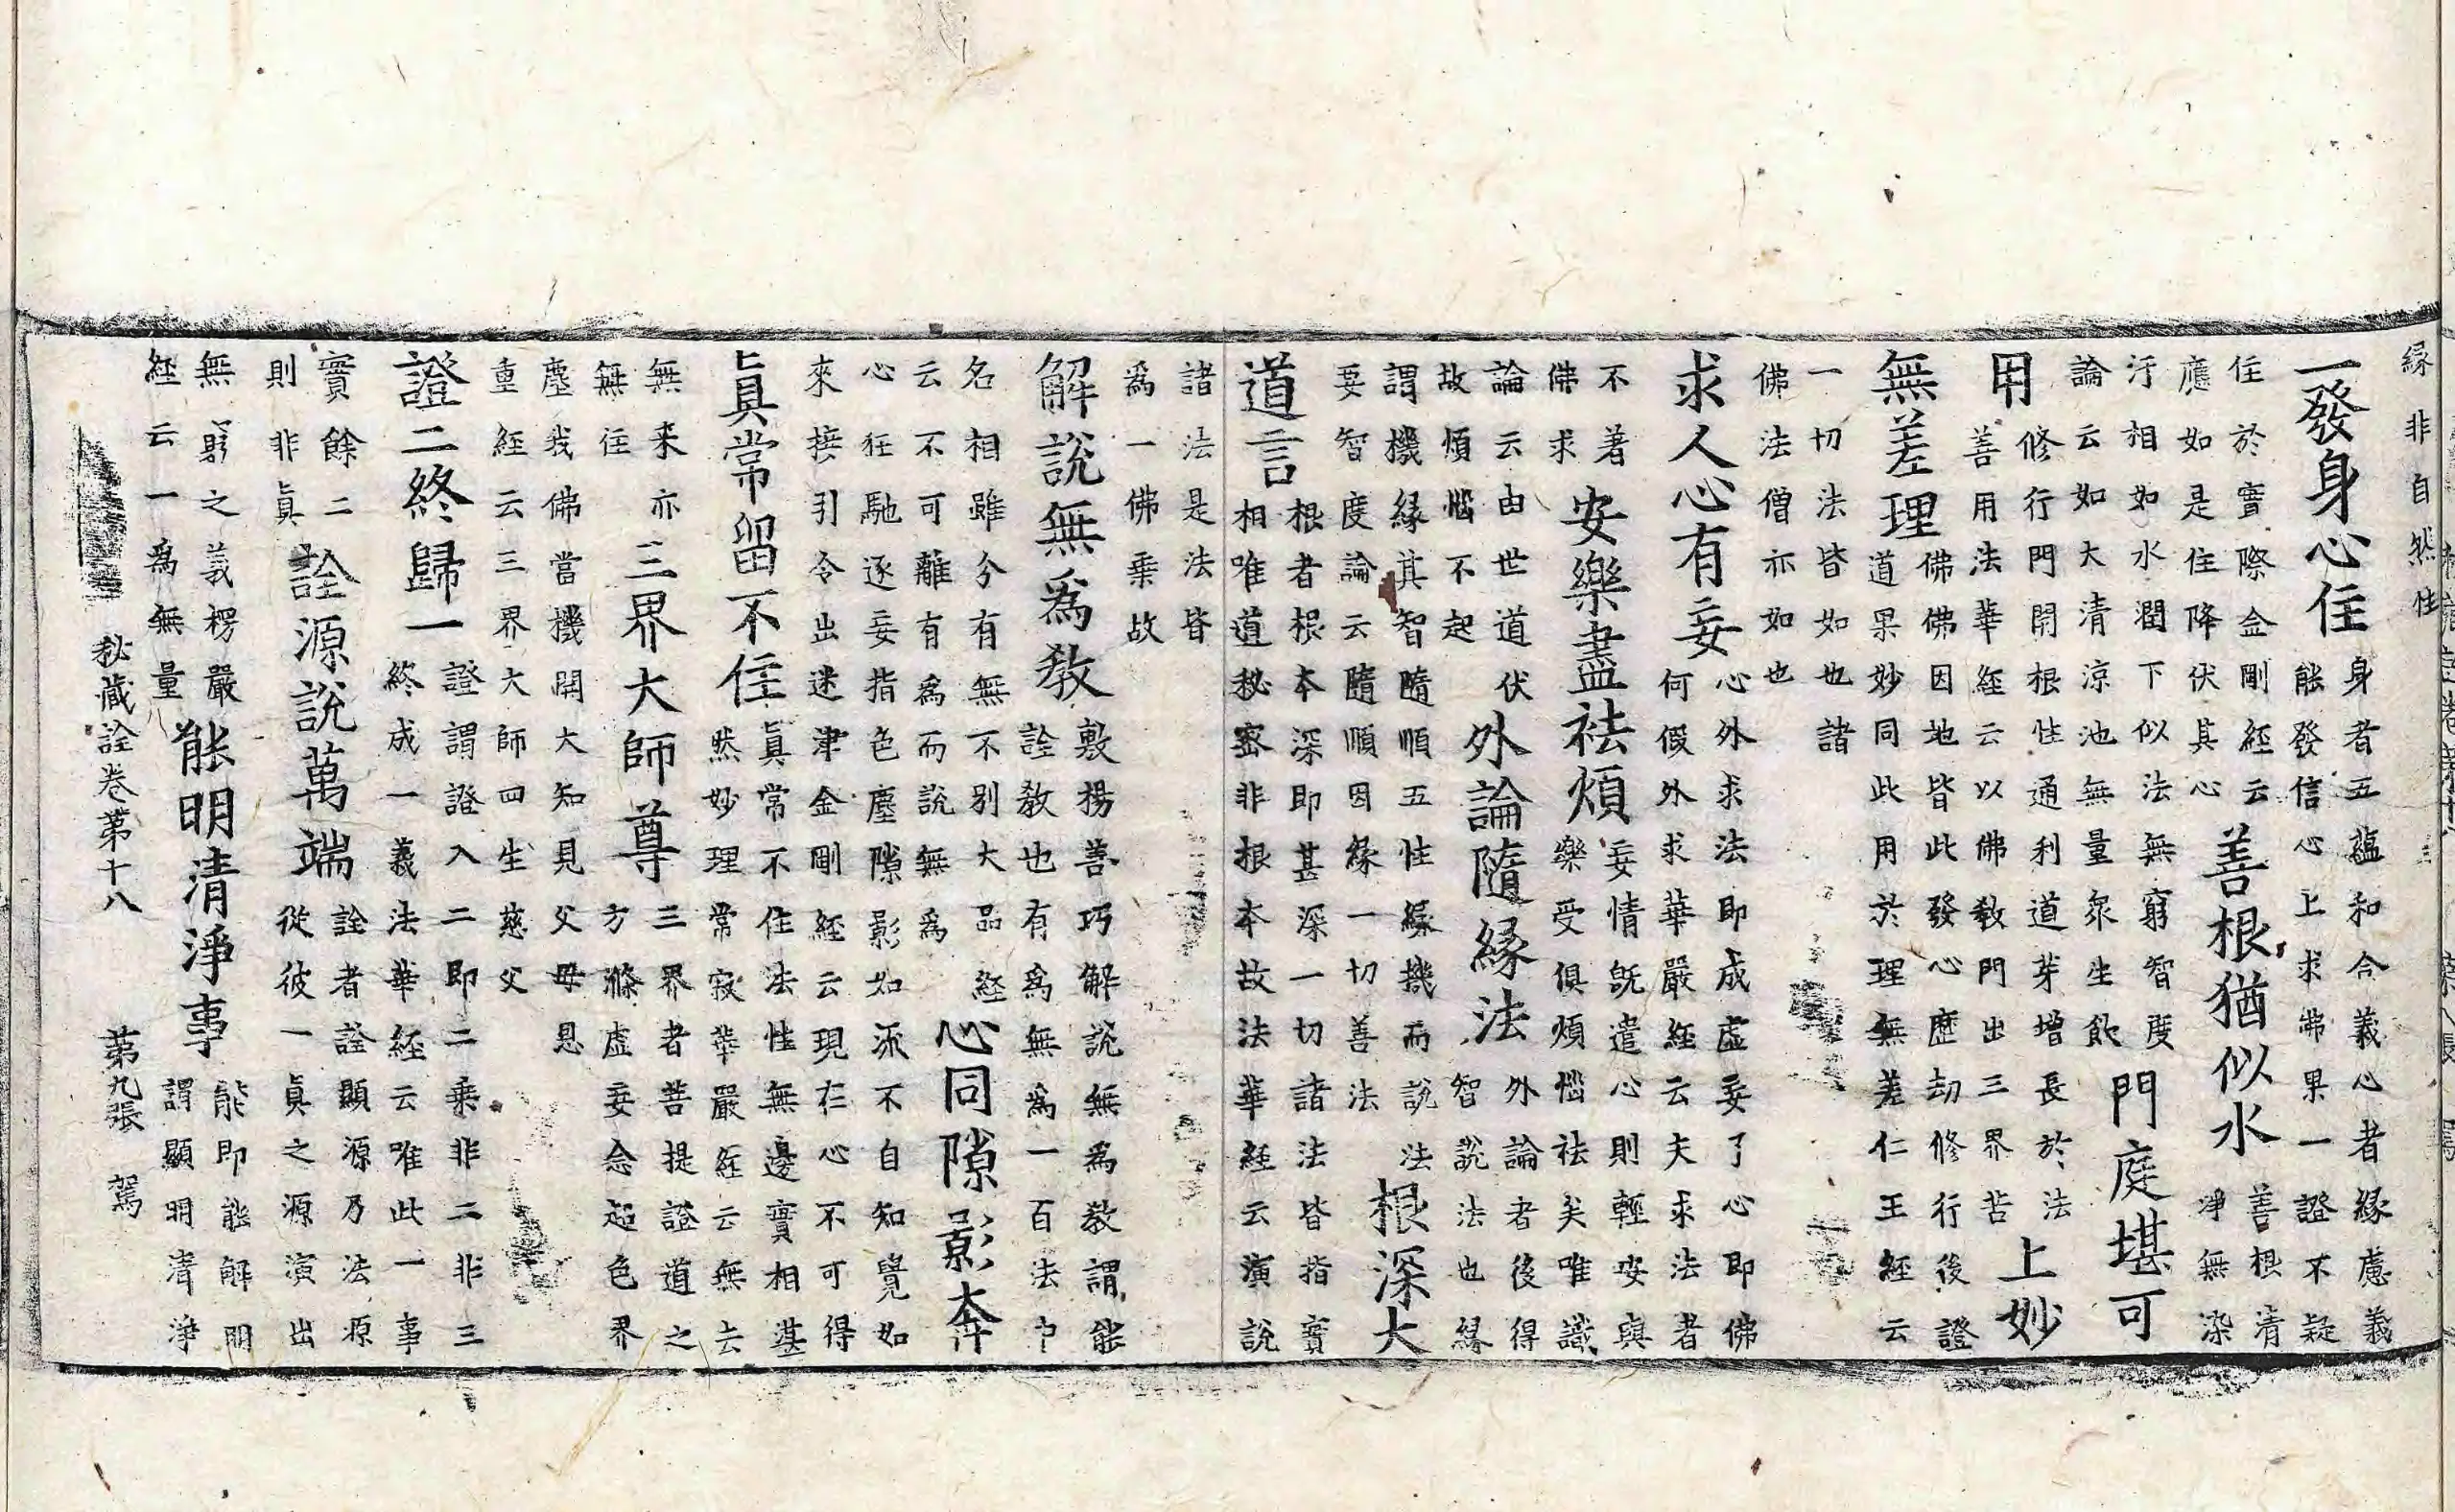 緣非自然性
一發身心住
身者五蘊和合義心者緣慮義
能發信心上求佛果一證不疑
住於實際金剛經云
應如是住降伏其心
善根猶似水
善根清
淨無染
汙相如水潤下似法無窮智度
論云如大清涼池無量衆生飲
門庭堪可
用
修行門開根性通利道芽增長於法
善用法華經云以佛教門出三界苦
上妙
無差理
佛佛因地皆此發心歷劫修行後證
道果妙同此用於理無差仁王經云
一切法皆如也諸
佛法僧亦如也
求人心有妄
心外求法即成虛妄了心即佛
何假外求華嚴經云夫求法者
不著
佛求
安樂盡祛煩
妄情旣遣心則輕安與
樂受俱煩惱祛矣唯識
論云由世道伏
故煩惱不起
外論隨緣法
外論者後得
智說法也緣
謂機緣其智隨順五性緣機而說法
要智度論云隨順因緣一切善法
根深大
道言
根者根本深即甚深一切諸法皆指實
相唯道秘密非根本故法華經云演說
諸法是法皆
爲一佛乗故
解說無爲教
敷揚善巧解說無爲教謂能
詮教也有爲無爲一百法中
名相雖分有無不別大品經
云不可離有爲而說無爲
心同隙影奔
心狂馳逐妄指色塵隙影如流不自知覺如
來接引令出迷津金剛經云現在心不可得
眞常留不住
眞常不住法性無邊實相湛
然妙理常寂華嚴經云無去
無来亦
無住
三界大師尊
三界者菩提證道之
方滌虛妄念起色界
塵我佛當機開大知見父母恩
重經云三界大師四生慈父
證二終歸一
證謂證入二即二乗非二非三
終成一義法華經云唯此一事
實餘二
則非眞
詮源說萬端
詮者詮顯源乃法源
從彼一眞之源演出
無窮之義楞嚴
經云一爲無量
能明清淨事
能即能解明
謂顯明清淨
秘藏詮卷第十八 第九張 駕